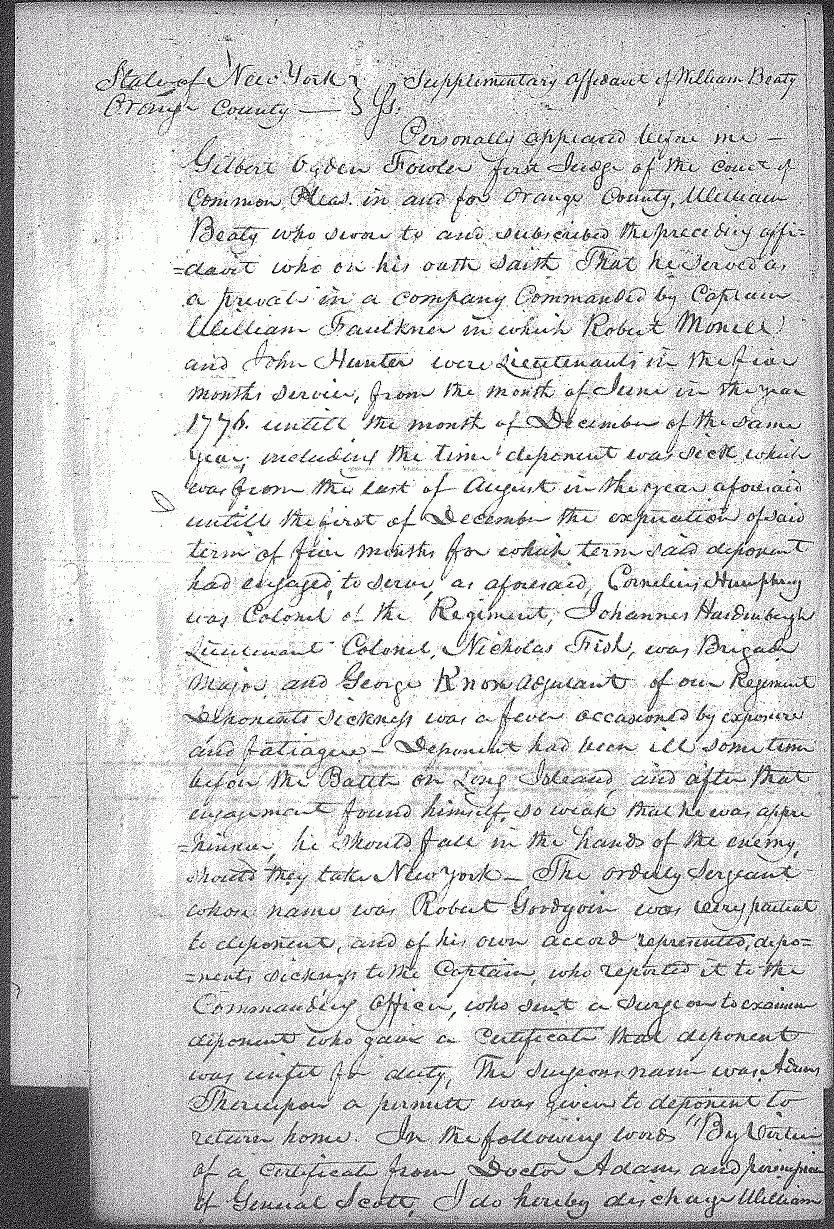 State of New York } Supplementary Affidavit of William Beaty
Orange County — } Ss.
Personally appeared before me —
Gilbert Ogden Fowler first Judge of the court of
Common Pleas in and for Orange County, William
Beaty who swore to and subscribed the preceding affi=
=davit who on his oath saith That he served as
a privat in a company Commanded by Captain
William Faulkner in which Robert Monell
and John Hunter were Lieutenants in the five
months service, from the month of June in the year
1776. untill the month of December of the same
year, including the time deponent was sick which
was from the last of August in the year aforesaid
untill the first of December the expiration of said
term of five months for which term said deponent
had engaged to serve, as aforesaid, Cornelius Humphrey
was Colonel of the Regiment, Johannes Hardenburgh
Lieutenant Colonel, Nicholas Fish, was Brigade
Major, and George Knox adjutant of our Regiment
Deponents sickness was a fever occasioned by exposure
and fatiague — Deponent had been ill some time
before the Battle on Long Island, and after that
engagement found himself, so weak that he was appre
=hensive, he should fall in the hands of the enemy,
should they take New York — The orderly Sergeant
whose name was Robert Goodgoin was very partial
to deponent, and of his own accord represented, depo=
=nents sickness to the Captain, who reported it to the
Commanding Officer, who sent a surgeon to examine
deponent who gave a Certificate that deponent
was unfit for duty, The surgeons name was Adams
Thereupon a permitt was given to deponent to
return home. In the following words "By Virtue
of a certificate from Doctor Adams and permission
of General Scott, I do hereby discharge William